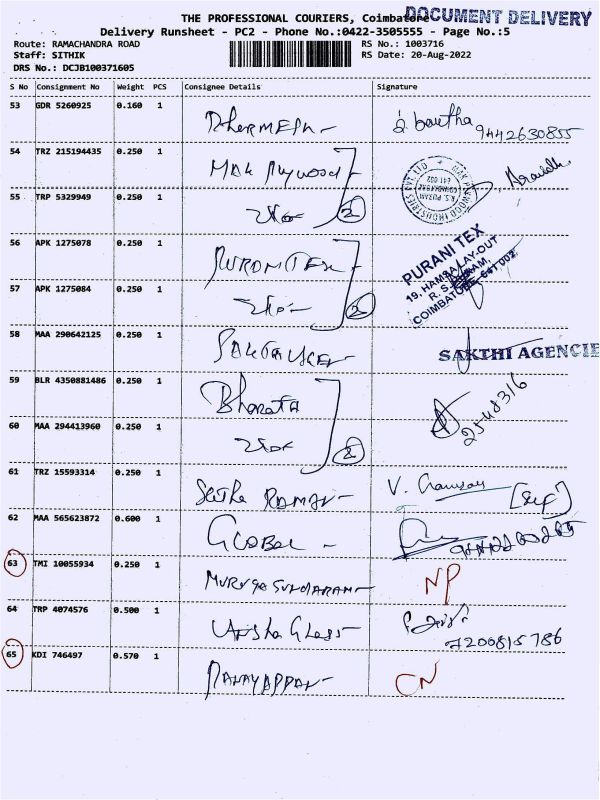 THE PROFESSIONAL COURIERS, Coimbatore
DOCUMENT DELIVERY
Delivery Runsheet - PC2 - Phone No.:0422-3505555 - Page No.:5
Route: RAMACHANDRA ROAD
RS No.: 1003716
Staff: SITHIK
RS Date: 20-Aug-2022
DRS No.: DCJB100371605
S No Consignment No Weight PCS Consignee Details Signature
53 GDR 5260925 0.160 1
9442630855
54 TRZ 215194435 0.250 1
55 TRP 5329949 0.250 1 2
R.S. PURAM
COIMBATORE
641 002
56 APK 1275078 0.250 1
PURANI TEX
19, HAMSA LAY-OUT
R. S. PURAM,
COIMBATORE-641 002
57 APK 1275084 0.250 1 2
58 MAA 290642125 0.250 1
SAKTHI AGENCIE
59 BLR 4350881486 0.250 1 Bharath
2548316
60 MAA 294413960 0.250 1 2
61 TRZ 15593314 0.250 1 V.
62 MAA 565623872 0.600 1 GLOBAL -
63 TMI 10055934 0.250 1 MURUGASUNDARAM - NP
64 TRP 4074576 0.500 1 Glass -
7200815786
65 KDI 746497 0.570 1 CN